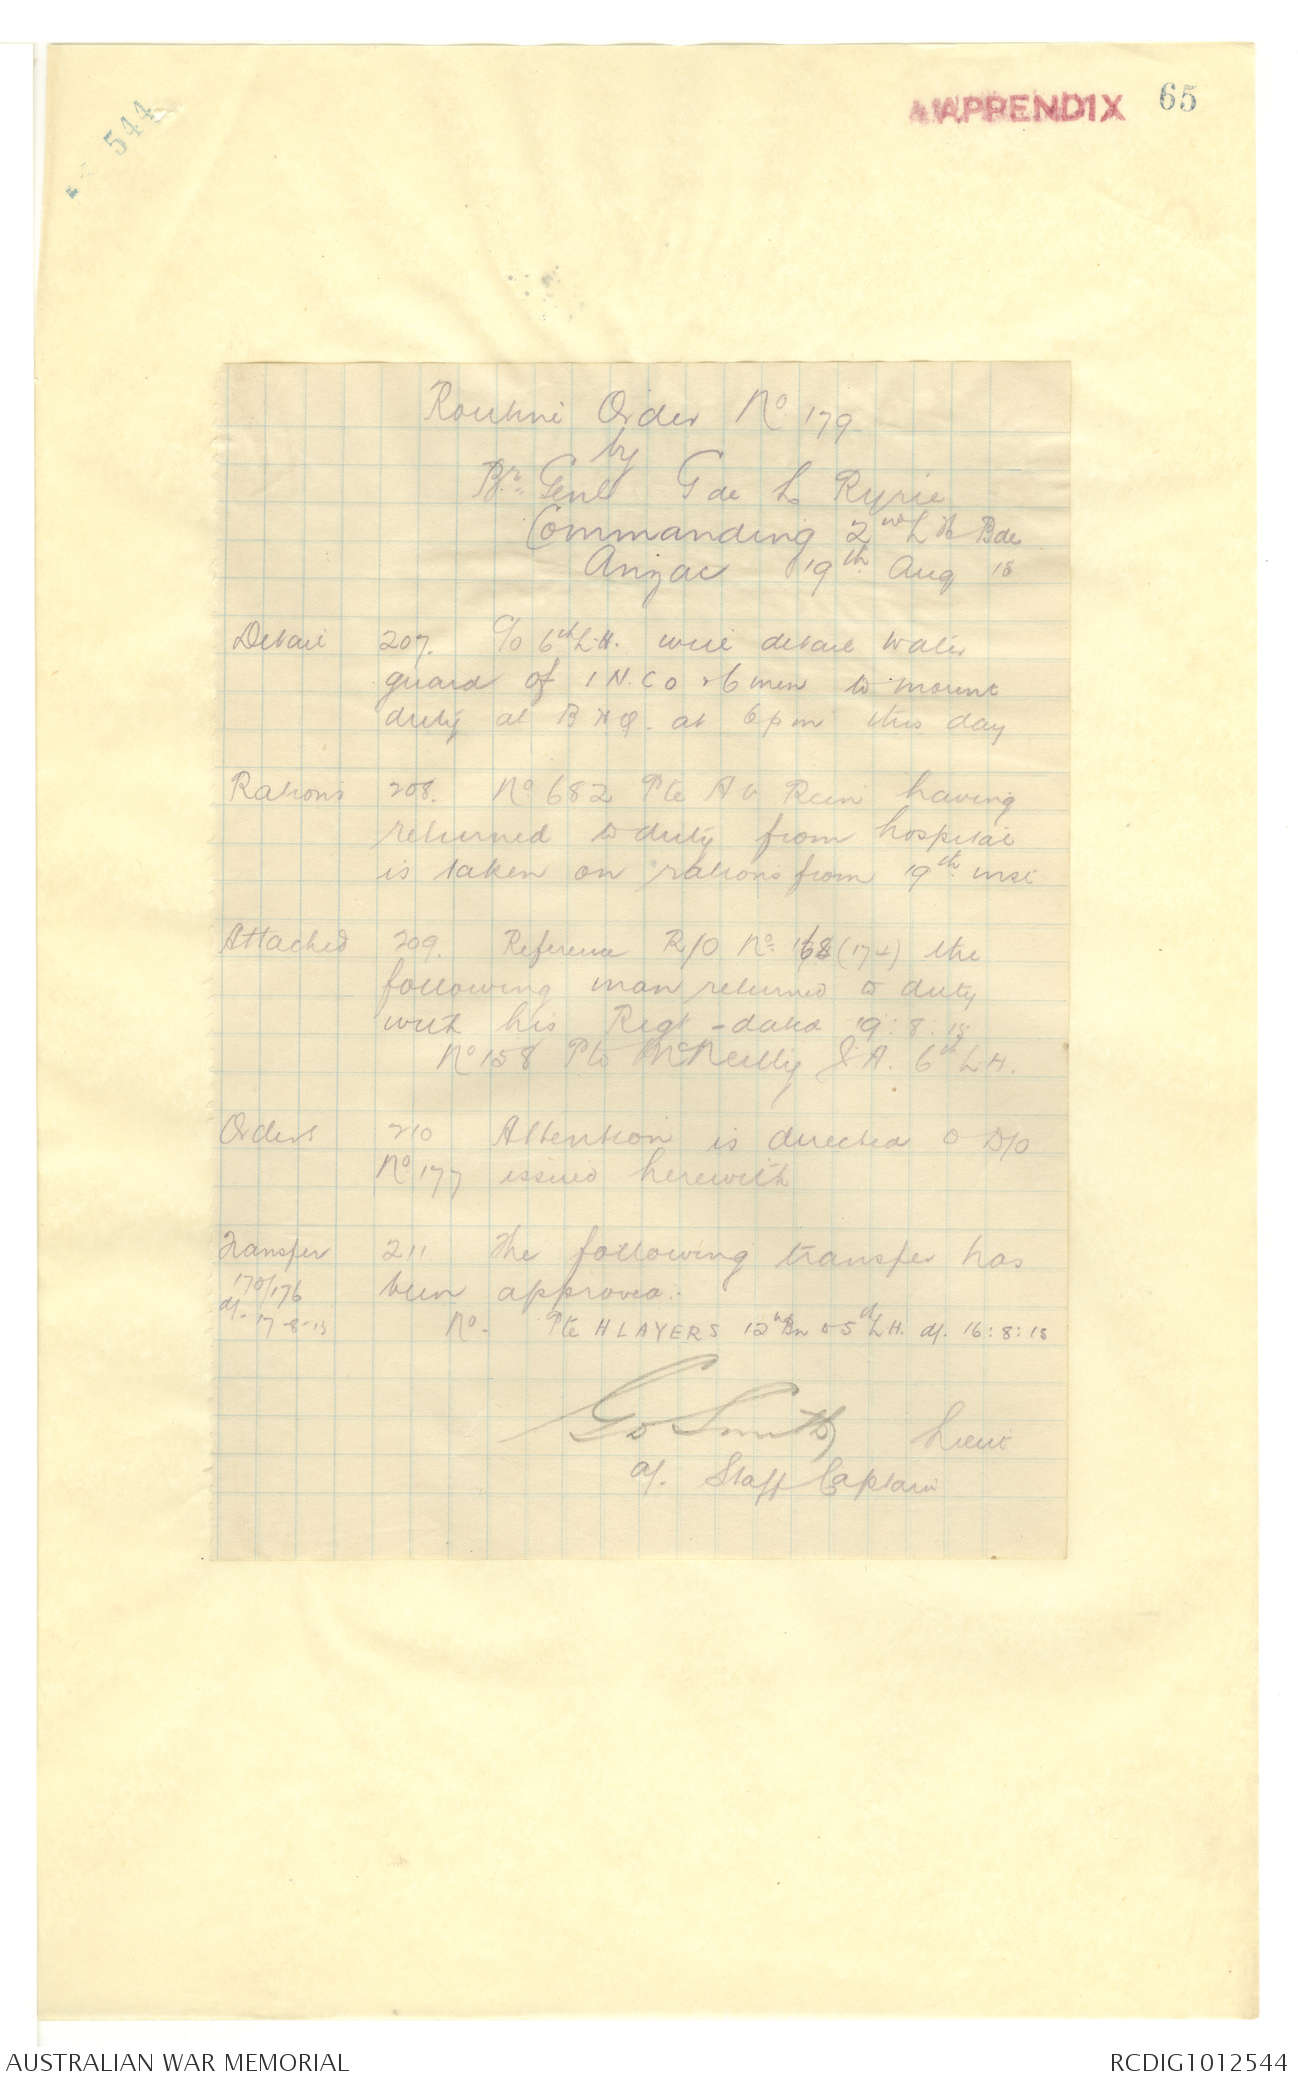 544
APPENDIX 65
Routine Order No 179
by
Br. Genl G de L Ryrie
Commanding 2nd L H Bde
Anzac 19th Aug 15
Detail 207. C/O 6th L.H. will detail water
guard of 1 N.C O & 6 men to mount
duty at B H Q. at 6 pm this day
Rations 208. No 682 Pte A Rein having
returned to duty from hospital
is taken on rations from 19th inst
Attached 209. Reference R/O No (174) the
following man returned to duty
with his Regt - dated 19:8:15
No 158 Pte McNeilly A. 6th L.H.
Orders 210 Attention is directed to D/O
No 177 issued herewith
Transfer 211 The following transfer has
170/176 been approved.
d/- 17-8-15
No. Pte H LAYERS 12th Bn to 5th L H. d/. 16:8:15
Smith Lieut
a/. Staff Captain
AUSTRALIAN WAR MEMORIAL
RCDIG1012544